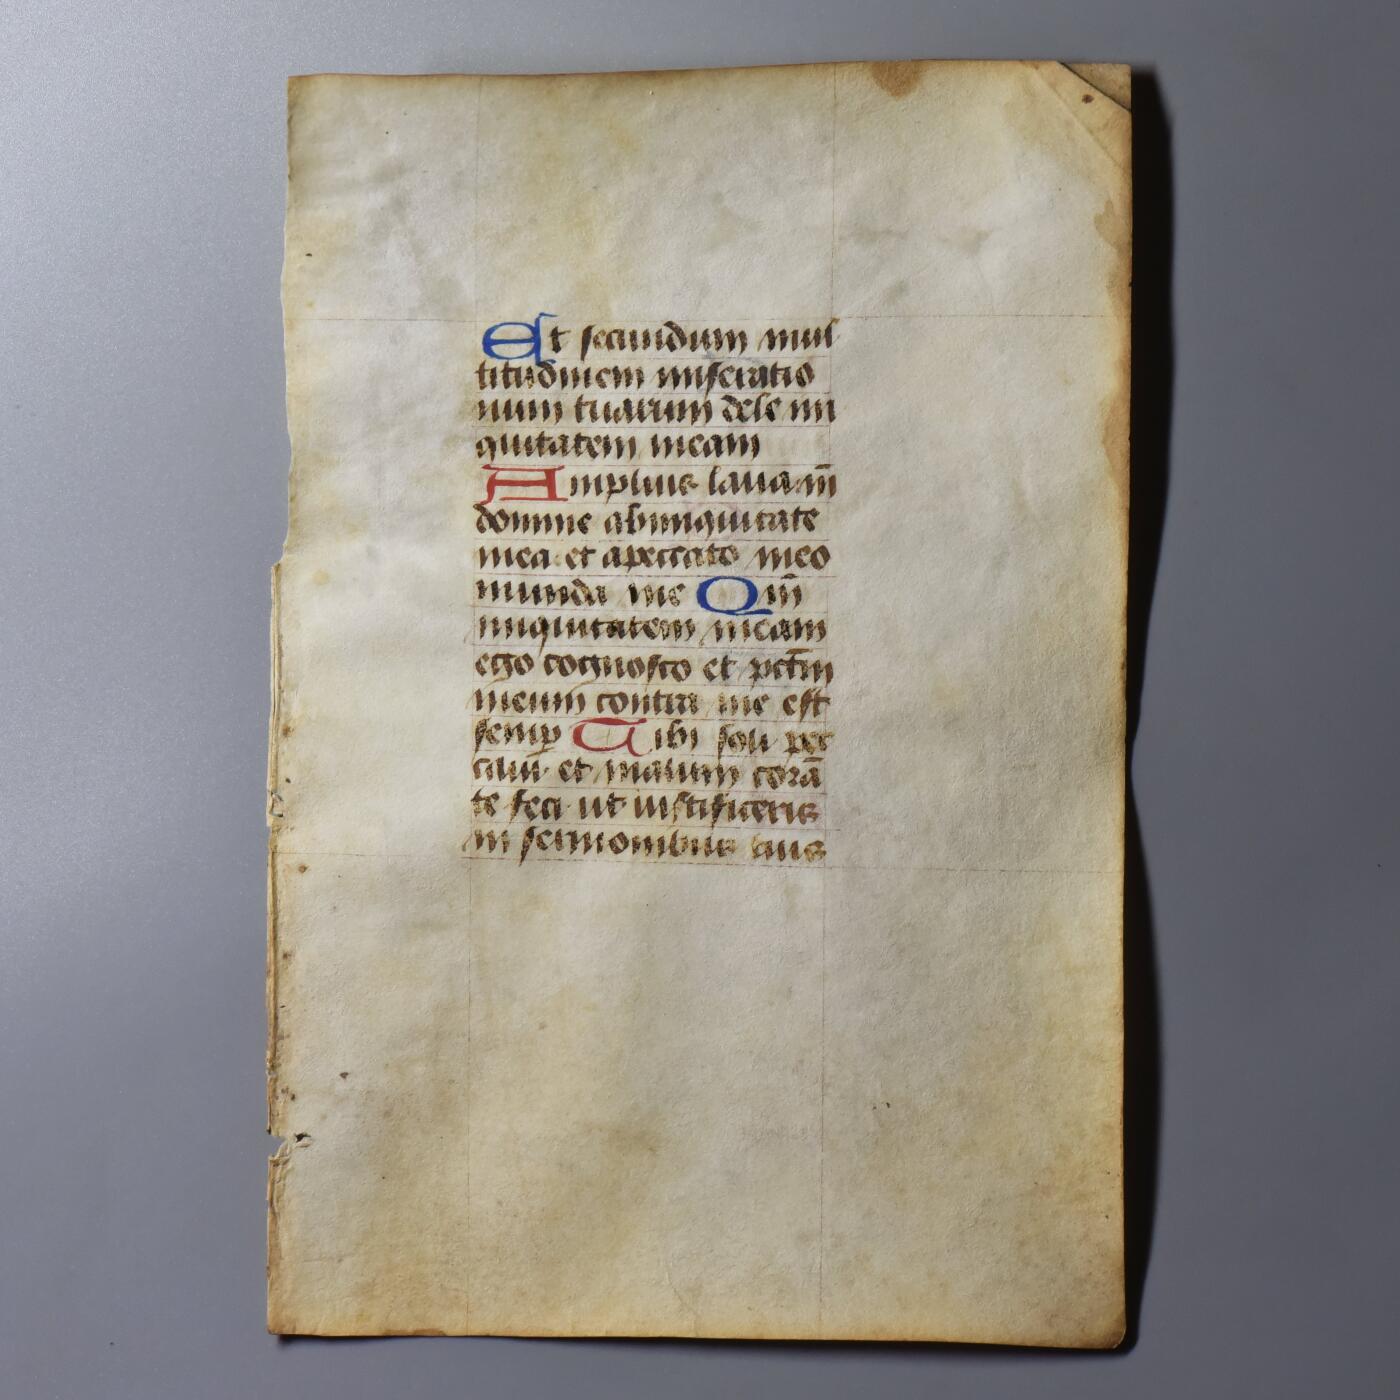 Et secundum mul
titudinem miseratio
num tuarum dele ini
quitatem meam
Amplius lava m̄
domine abiniquitate
mea et apeccato meo
munda me Qm̄
iniquitatem meam
ego cognosco et pctm̄
meum contra me est
semp̱ Tibi soli pec
caui et malum corā
te feci ut iustificeris
in sermonibus tuis